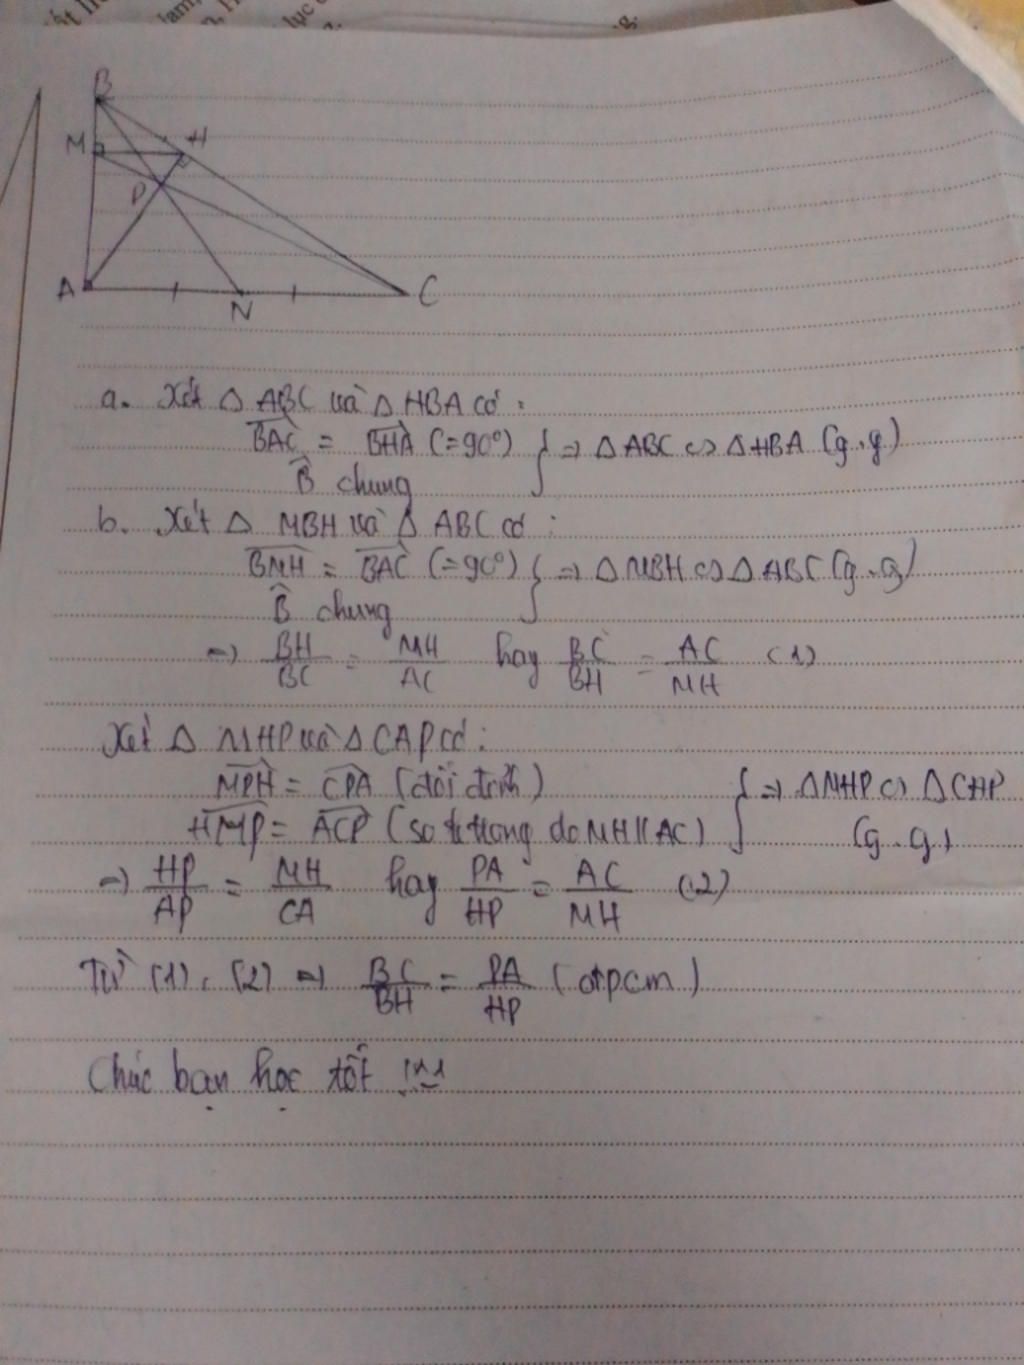 B
M
H
P
A
N
C
a. Xét △ ABC và △ HBA có :
BAC = BHA (=90°) } => △ ABC ∽ △HBA (g.g)
B̂ chung
b. Xét △ MBH và △ ABC có :
BMH = BAC (=90°) } => △MBH ∽ △ABC (g.g)
B̂ chung
=> BH/BC = MH/AC hay BC/BH = AC/MH (1)
Xét △ MHP và △CAP có :
MPH = CPA (đối đỉnh) } => △MHP ∽ △CHP
HMP = ACP (so le trong do MH//AC) (g.g)
=> HP/AP = MH/CA hay PA/HP = AC/MH (2)
Từ (1), (2) => BC/BH = PA/HP (đpcm)
Chúc bạn học tốt